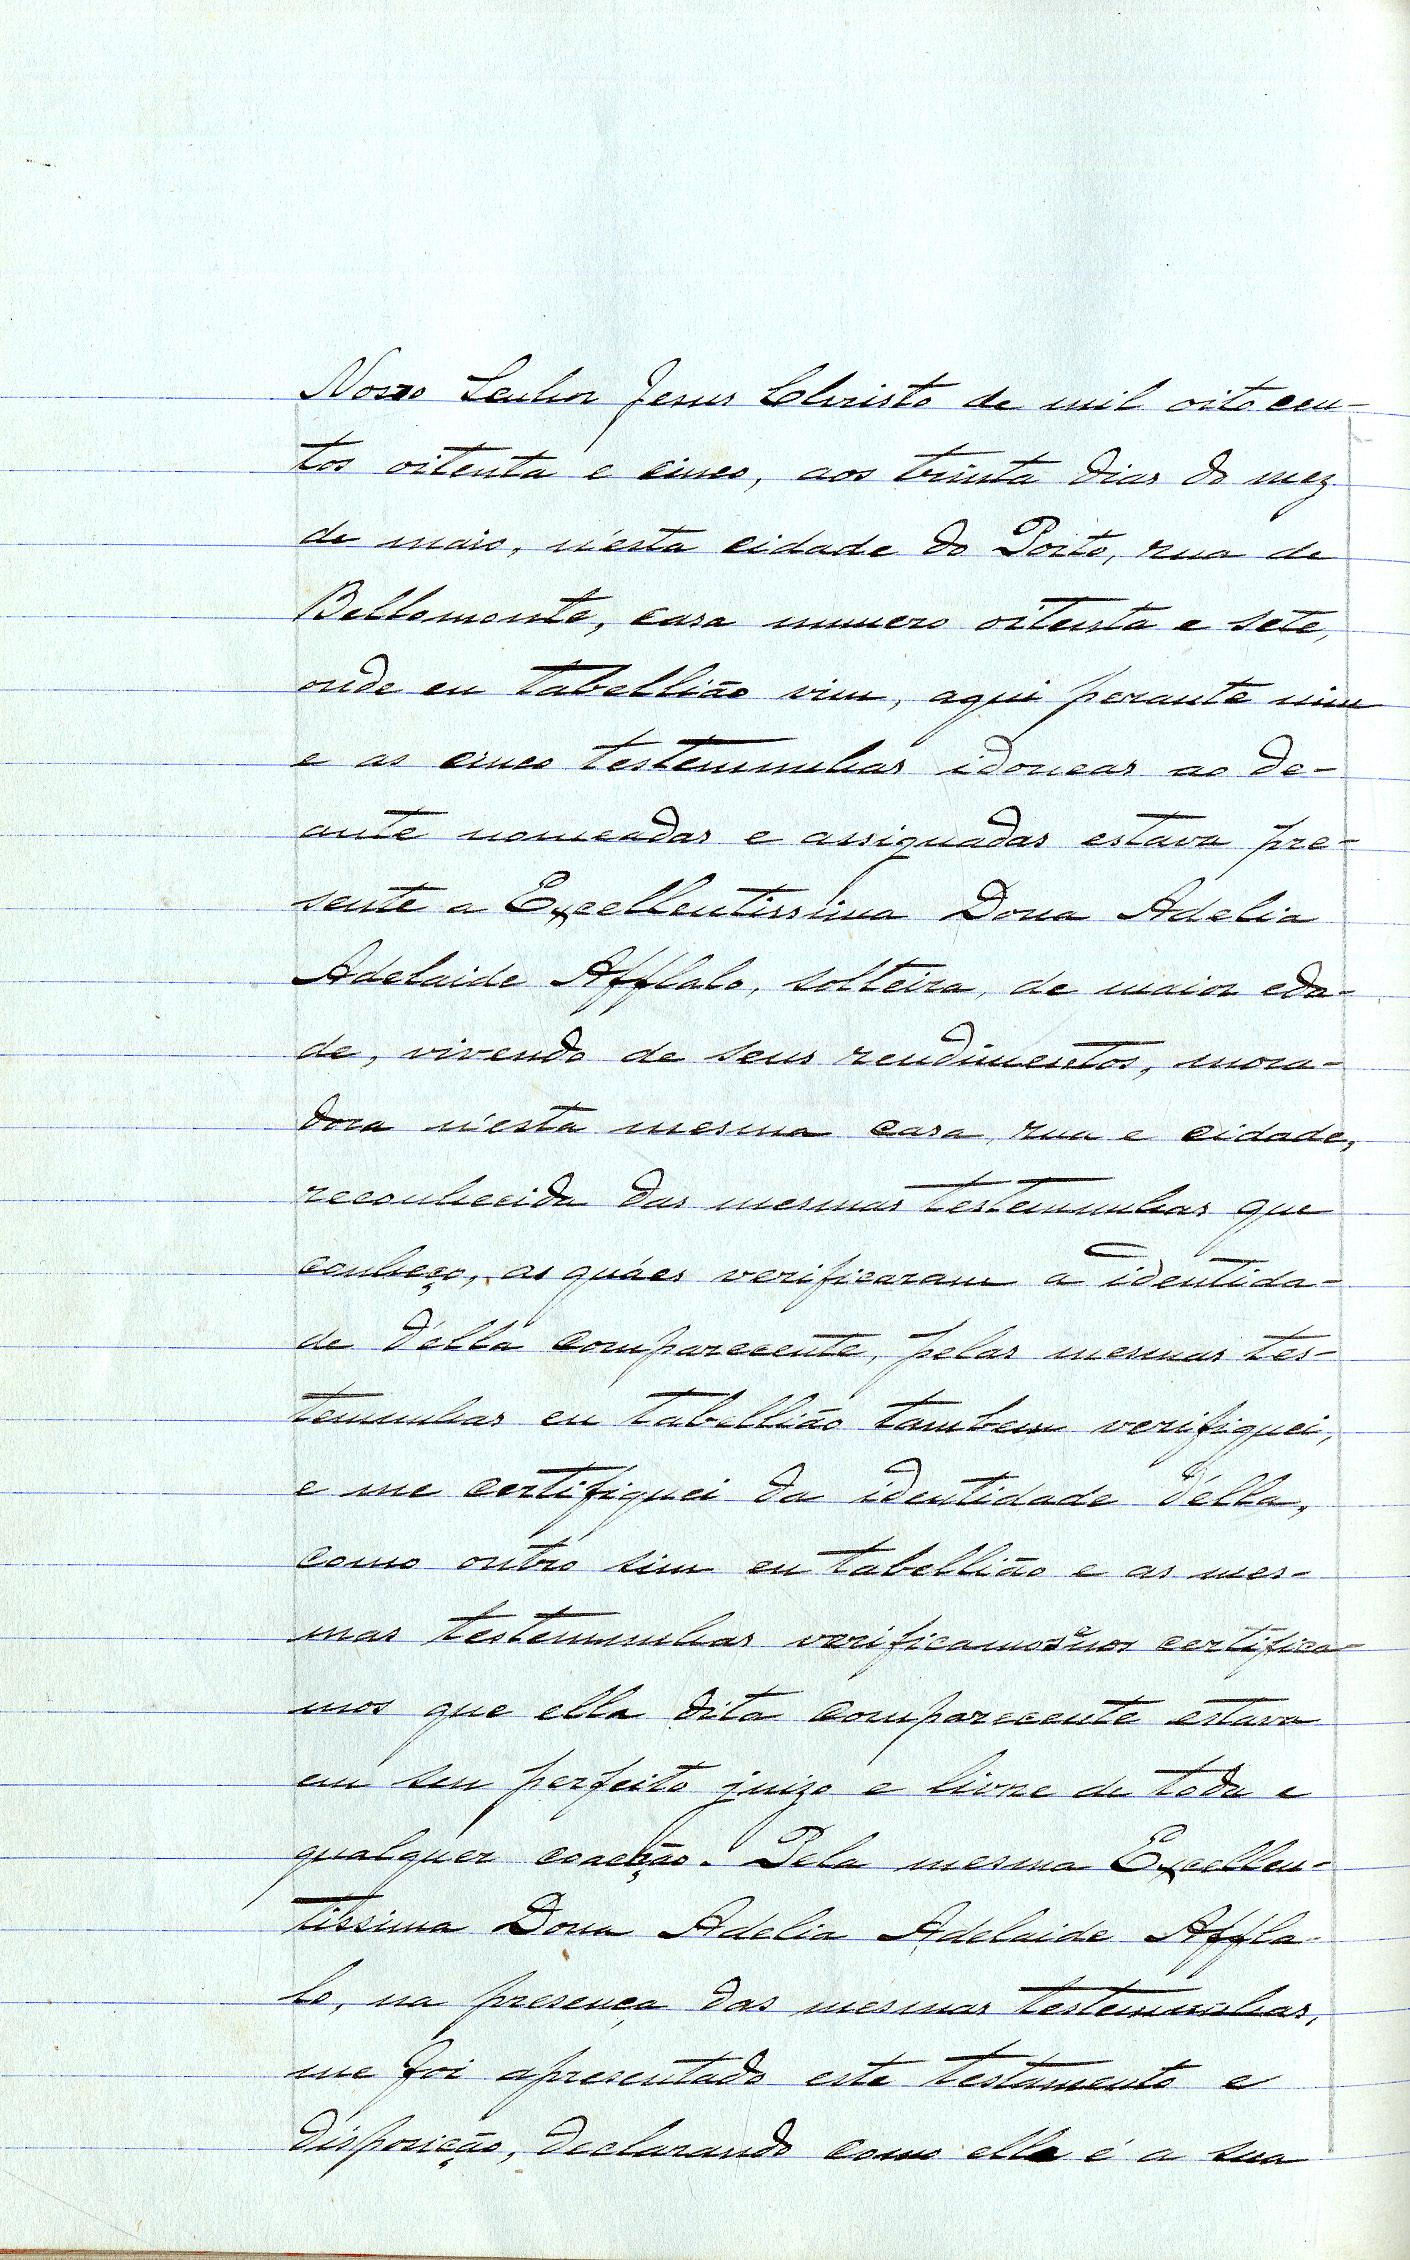 Nosso Senhor Jesus Christo de mil oitocen-
tos oitenta e cinco, aos trinta dias do mez
de maio, n'esta cidade do Porto, rua de
Bellomonte, casa numero oitenta e sete,
onde eu tabellião vim, aqui perante mim
e as cinco testemunhas idoneas ao de-
ante nomeadas e assignadas estava pre-
sente a Excellentissima Dona Adelia
Adelaide Afflalo, solteira, de maior eda-
de, vivendo de seus rendimentos, mora-
dora n'esta mesma casa, rua e cidade,
reconhecida das mesmas testemunhas que
conheço, as quáes verificaram a identida-
de d'ella comparecente, pelas mesmas tes-
temunhas eu tabellião tambem verifiquei,
e me certifiquei da identidade d'ella,
como outro sim eu tabellião e as mes-
mas testemunhas verificamos e nos certifica-
mos que ella dita comparecente estava
em seu perfeito juizo e livre de toda e
qualquer coacção. Pela mesma Excellen-
tissima Dona Adelia Adelaide Affla-
lo, na presença das mesmas testemunhas,
me foi apresentado este testamento e
disposição, declarando como ella é a sua